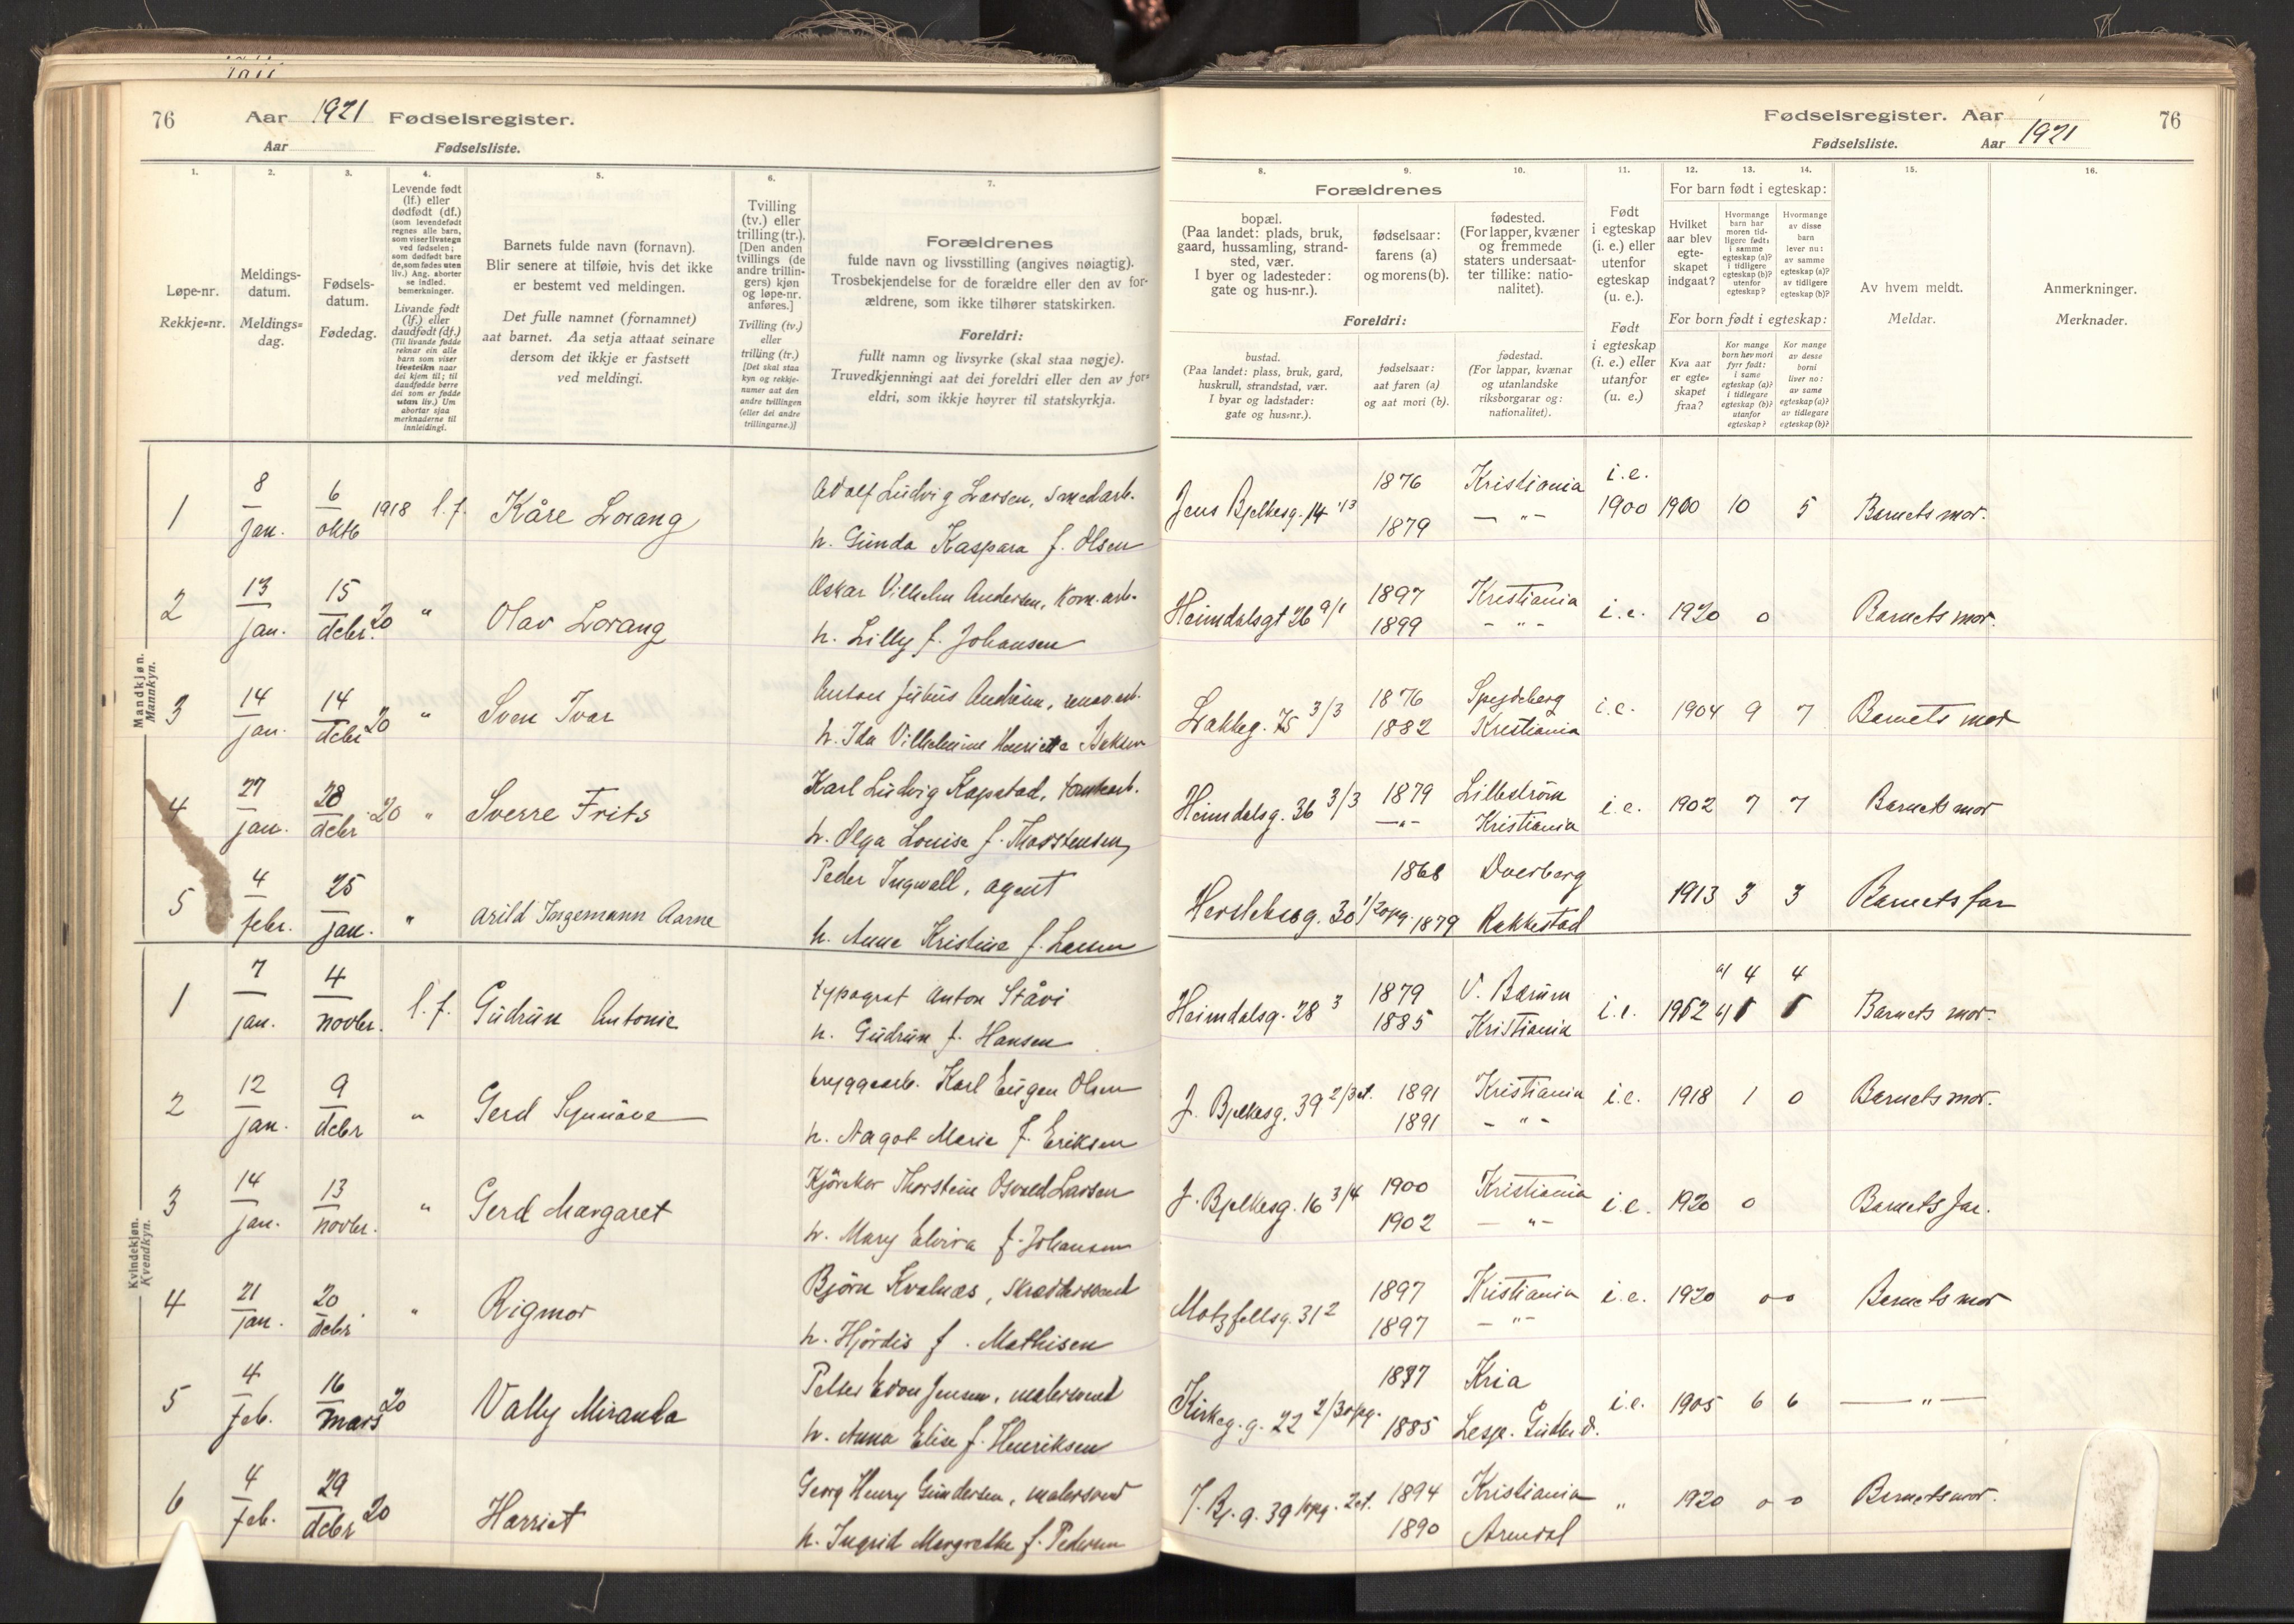 76 Aar 1921 Fødselsregister.
Aar Fødselsliste.
1. 2. 3. 4. 5. 6. 7.
Løpe-nr.
Rekkje-nr.
Meldings-
datum.
Meldings-
dag.
Fødsels-
datum.
Fødedag.
Levende født
(lf.) eller
dødfødt (df.)
(som levendefødt
regnes alle barn,
som viser livstegn
ved fødselen;
som dødfødt bare
de, som fødes uten
liv.) Ang. aborter
se indled.
bemerkninger.
Livande født
(lf.) eller
daudfødt (df.)
(Til livande fødde
reknar ein alle
barn som viser
livsteikn naar
dei kjem til; til
daudfødde berre
dei som er fødde
utan liv.) Um
abortar sjaa
merknaderne til
innleidingi.
Barnets fulde navn (fornavn).
Blir senere at tilføie, hvis det ikke
er bestemt ved meldingen.
Det fulle namnet (fornamnet)
aat barnet. Aa setja attaat seinare
dersom det ikkje er fastsett
ved meldingi.
Tvilling
(tv.) eller
trilling (tr.).
[Den anden
tvillings (de
andre trillin-
gers) kjøn
og løpe-nr.
anføres.]
Tvilling (tv.)
eller
trilling (tr.)
[Det skal staa
kyn og rekkje-
numer aat den
andre tvillingen
(eller dei andre
trillingarne.)]
Forældrenes
fulde navn og livsstilling (angives nøiagtig).
Trosbekjendelse for de forældre eller den av for-
ældrene, som ikke tilhører statskirken.
Foreldri:
fullt namn og livsyrke (skal staa nøgje).
Truvedkjenningi aat dei foreldri eller den av for-
eldri, som ikkje høyrer til statskyrkja.
Mandkjøn.
Mannkyn.
1 8 jan. 6 oktb 1918 l.f. Kåre Lorang Adolf Ludvig Larsen, smedarb.
h. Gunda Kaspara f. Olsen
2 13 jan. 15 debr. 20 " Olav Lorang Oskar Vilhelm Andersen, kom. arb.
h. Lilly f. Johansen
3 14 jan. 14 debr 20 " Sven Ivar Anton Julius
h. Ida Vilhelmine
4 27 jan. 28 debr 20 " Sverre Frits Karl Ludvig Kapstad,
h. Olga Louise f. Thorstensen
5 4 febr. 25 jan. " Arild Ingemann Aarne Peder Ingwall, agent
h. Anna Kristine f. Larsen
Kvindekjøn.
Kvendkyn.
1 7 jan. 4 novbr. l.f. Gudrun Antonie typograf Anton Ståvi
h. Gudrun f. Hansen
2 12 jan. 9 debr " Gerd Synnöve bryggearb. Karl Eugen Olsen
h. Aagot Marie f. Eriksen
3 14 jan. 13 novbr. " Gerd Margaret Kjörekar Thorstein Osvald Larsen
h. Mary Elvira f. Johansen
4 21 jan. 20 debr " Rigmor Björn Kvalnæs, skræddersvend
h. Hjördis f. Mathisen
5 4 feb. 16 mars 20 Vally Miranda Jensen, malersvend
h. Anna Elise f. Henriksen
6 4 feb. 29 debr 20 Harriet Georg Henry Gundersen, malersvend
h. Ingrid Margrethe f. Pedersen
Fødselsregister. Aar 76
Fødselsliste. Aar 1921
8. 9. 10. 11. 12. 13. 14. 15. 16.
Forældrenes
bopæl.
(Paa landet: plads, bruk,
gaard, hussamling, strand-
sted, vær.
I byer og ladesteder:
gate og hus-nr.).
fødselsaar:
farens (a)
og morens (b).
fødested.
(For lapper, kvæner
og fremmede
staters undersaat-
ter tillike: natio-
nalitet).
Foreldri:
bustad.
(Paa landet: plass, bruk, gard,
huskrull, strandstad, vær.
I byar og ladstader:
gate og hus-nr.).
fødselsaar:
aat faren (a)
og aat mori (b).
fødestad.
(For lappar, kvænar
og utanlandske
riksborgarar og:
nationalitet).
Født
i egteskap
(i. e.) eller
utenfor
egteskap
(u. e.).
Født
i egteskap
(i. e.) eller
utanfor
(u. e.)
For barn født i egteskap:
Hvilket
aar blev
egte-
skapet
indgaat?
Hvormange
barn har
moren tid-
ligere født:
i samme
egteskap (a)?
i tidligere
egteskap (b)?
utenfor
egteskap?
Hvormange
av disse
barn
lever nu:
av samme
egteskap (a)?
av tidligere
egteskap (b)?
For born født i egteskap:
Kva aar
er egte-
skapet
fraa?
Kor mange
born hev mori
fyrr født:
i same
egteskap (a)?
i tidlegare
egteskap (b)?
utanfor
egteskap?
Kor mange
av desse
borni
liver no:
av same
egteskap (a)?
av tidlegare
egteskap (b)?
Av hvem meldt.
Meldar.
Anmerkninger.
Merknader.
Jens Bjelkesg. 14 1/3 1876 Kristiania i.e. 1900 1900 10 5 Barnets mor.
1879 — " —
Heimdalsgt 26 9/1 1897 Kristiania i.e. 1920 0 Barnets mor.
1899 - " -
Lakkeg. 75 3/3 1876 Spydeberg i.e. 1904 9 7 Barnets mor
1882 Kristiania
Heimdalsg. 36 3/3 1879 Lilleström i.e. 1902 7 7 Barnets mor
— " — Kristiania
Herslebsg. 30 1/2 opg. 1868 Dverberg 1913 3 3 Barnets far
1879 Rakkestad
Heimdalsg. 28 3 1879 V. Bærum i.e. a) 4 4 Barnets mor.
1885 Kristiania
J. Bjelkesg. 39 2/3 et. 1891 Kristiania i.e. 1918 1 0 Barnets mor.
1891 - " -
J. Bjelkesg. 16 3/4 1900 Kristiania i.e. 1920 0 Barnets far.
1902 — " —
Motzfeltsg. 31 2 1897 Kristiania i.e. 1920 0 - 0 Barnets mor
1897 — " —
Kirkeg. g. 22 2/3 opg. Kria i.e. 1905 6 6 — " —
1885
J. Bj. g. 39 opg. 2 et. 1894 Kristiania " 1920 0 - 0 Barnets mor.
1890 Arendal